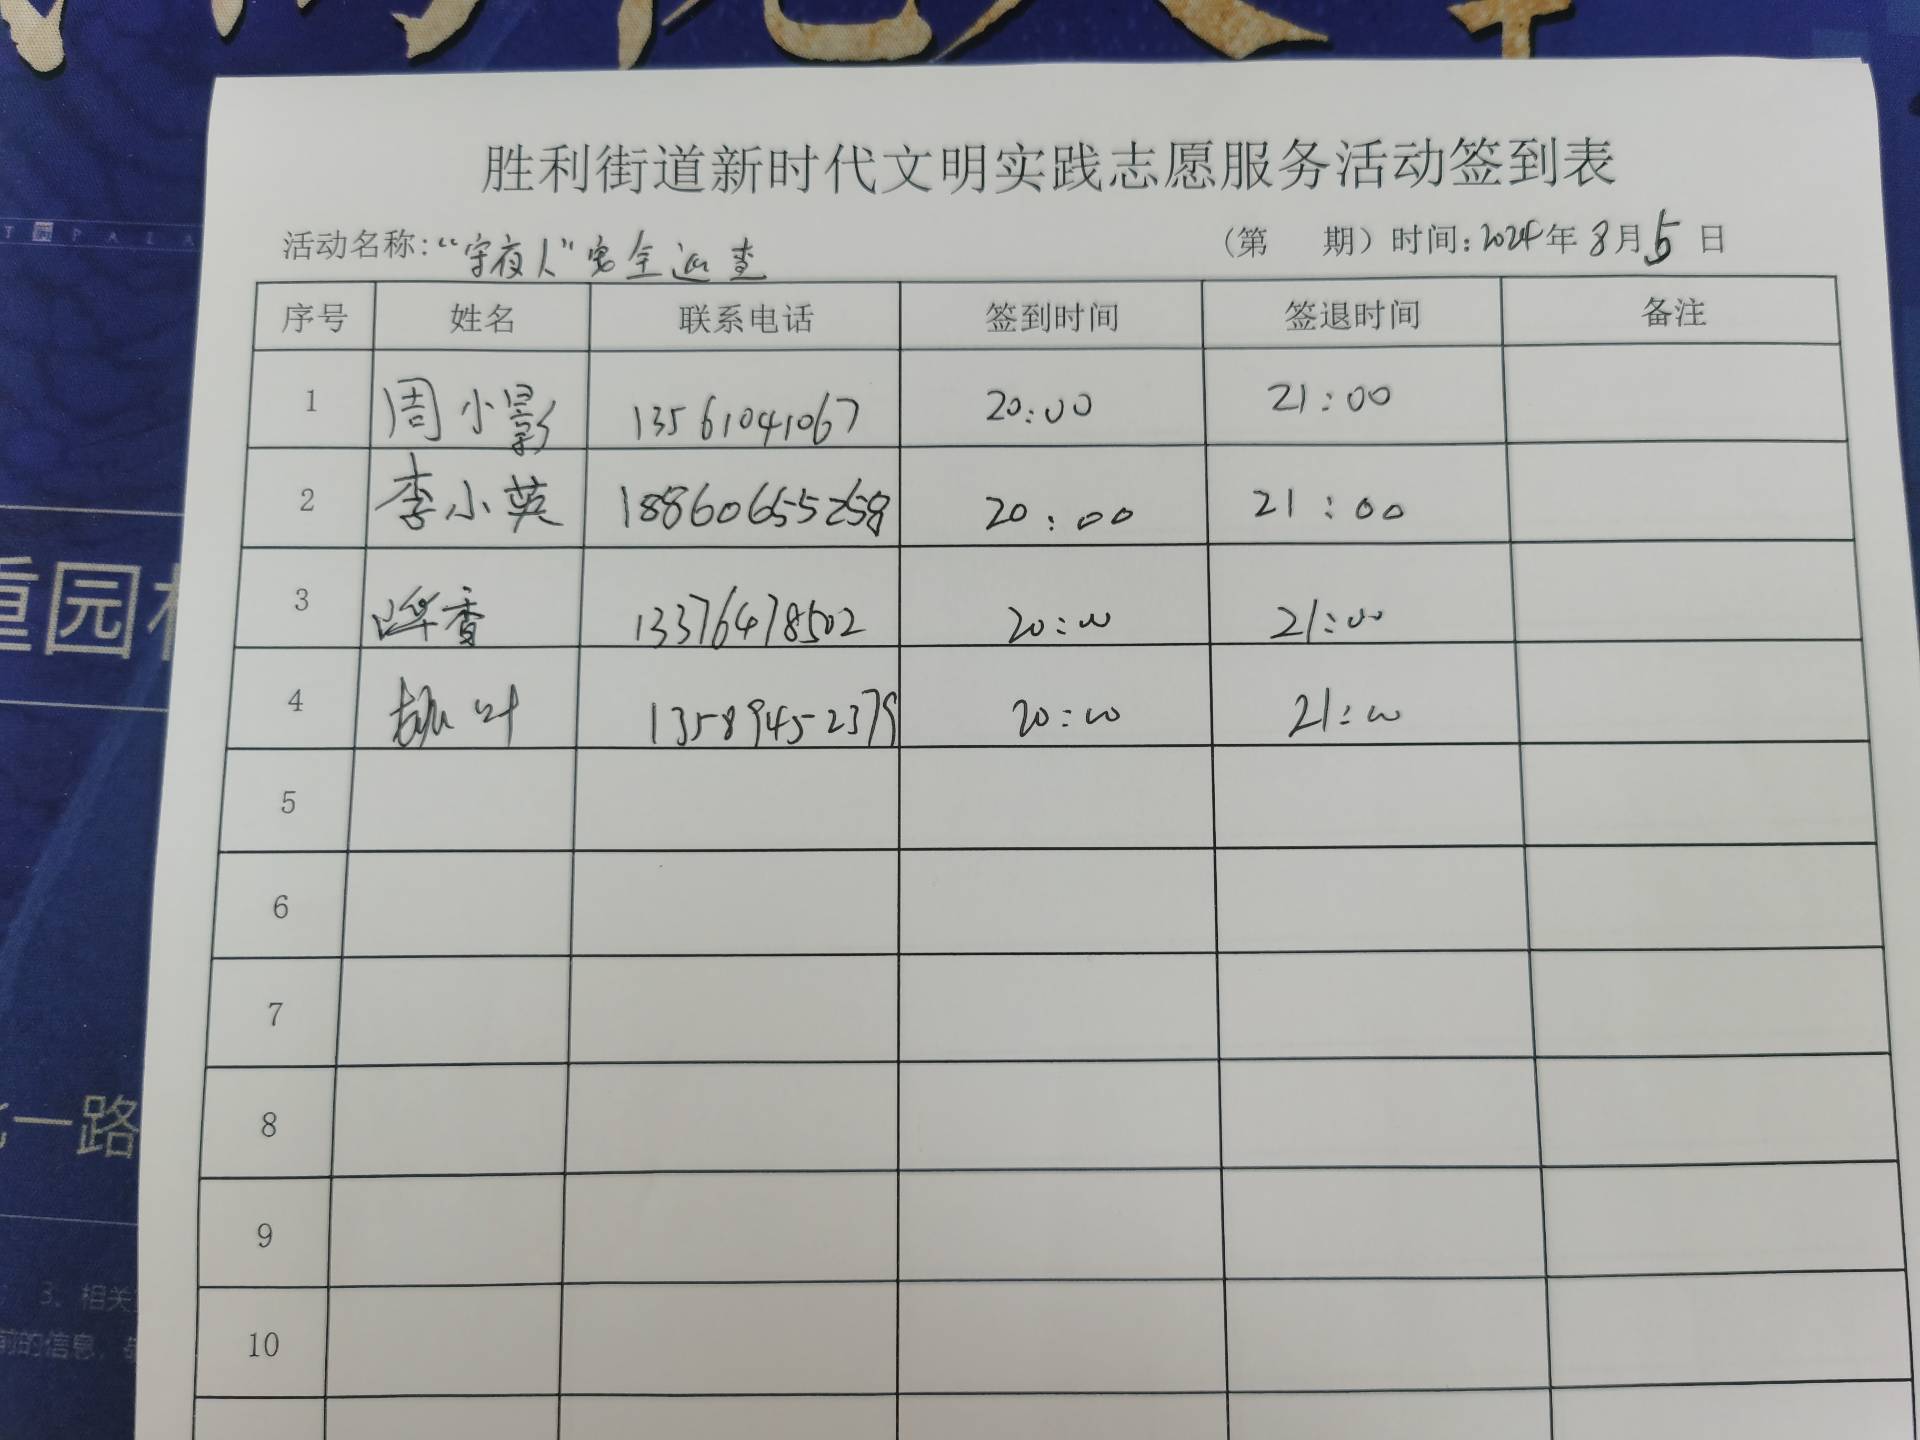 胜利街道新时代文明实践志愿服务活动签到表
活动名称:“守夜人”安全巡查 (第 期) 时间:2024年8月5日
序号 姓名 联系电话 签到时间 签退时间 备注
1 周小影 13561041067 20:00 21:00
2 李小英 18860655258 20:00 21:00
3 香 13376478502 20:00 21:00
4 叶 13589452379 20:00 21:00
5
6
7
8
9
10
重园
一路
3、相关
前的信息,